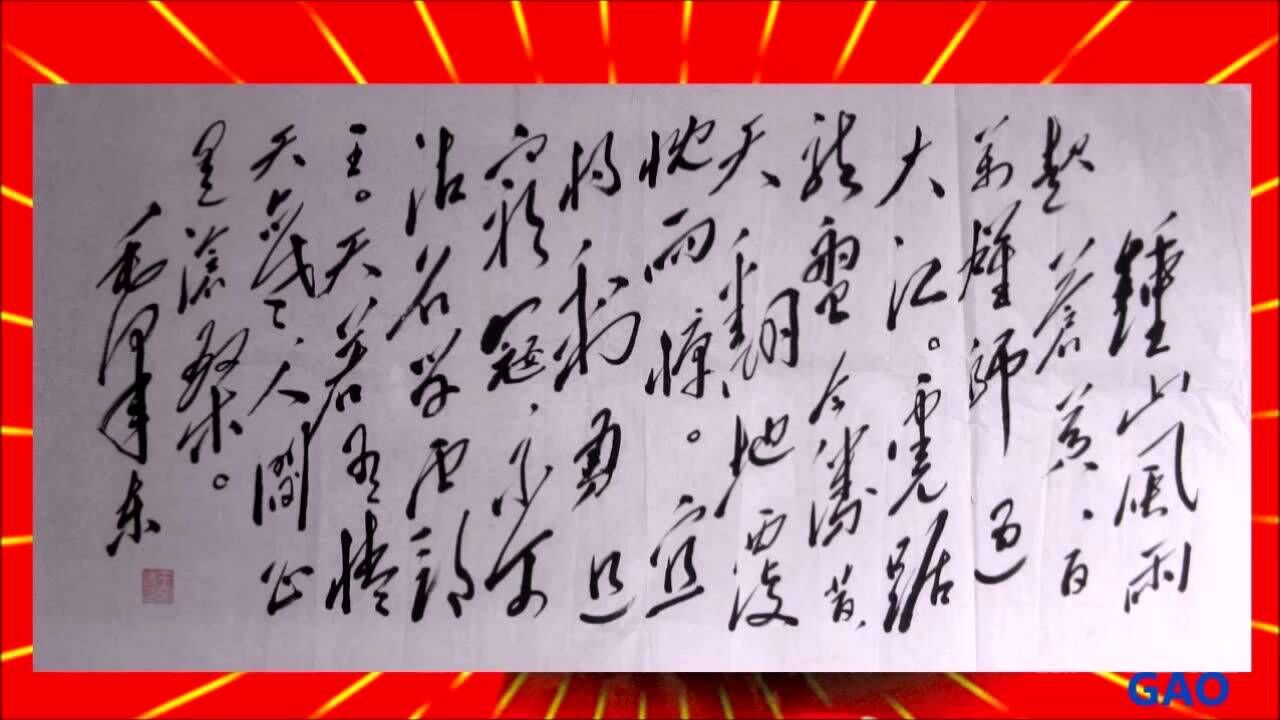 鍾山風雨
起蒼黃、百
萬雄師過
大江。虎踞
龍盤今勝昔、
天翻地覆
慨而慷。宜
將剩勇追
窮寇、不可
沽名學霸
王。天若有情
天亦老、人間正
是滄桑。
毛澤東
GAO